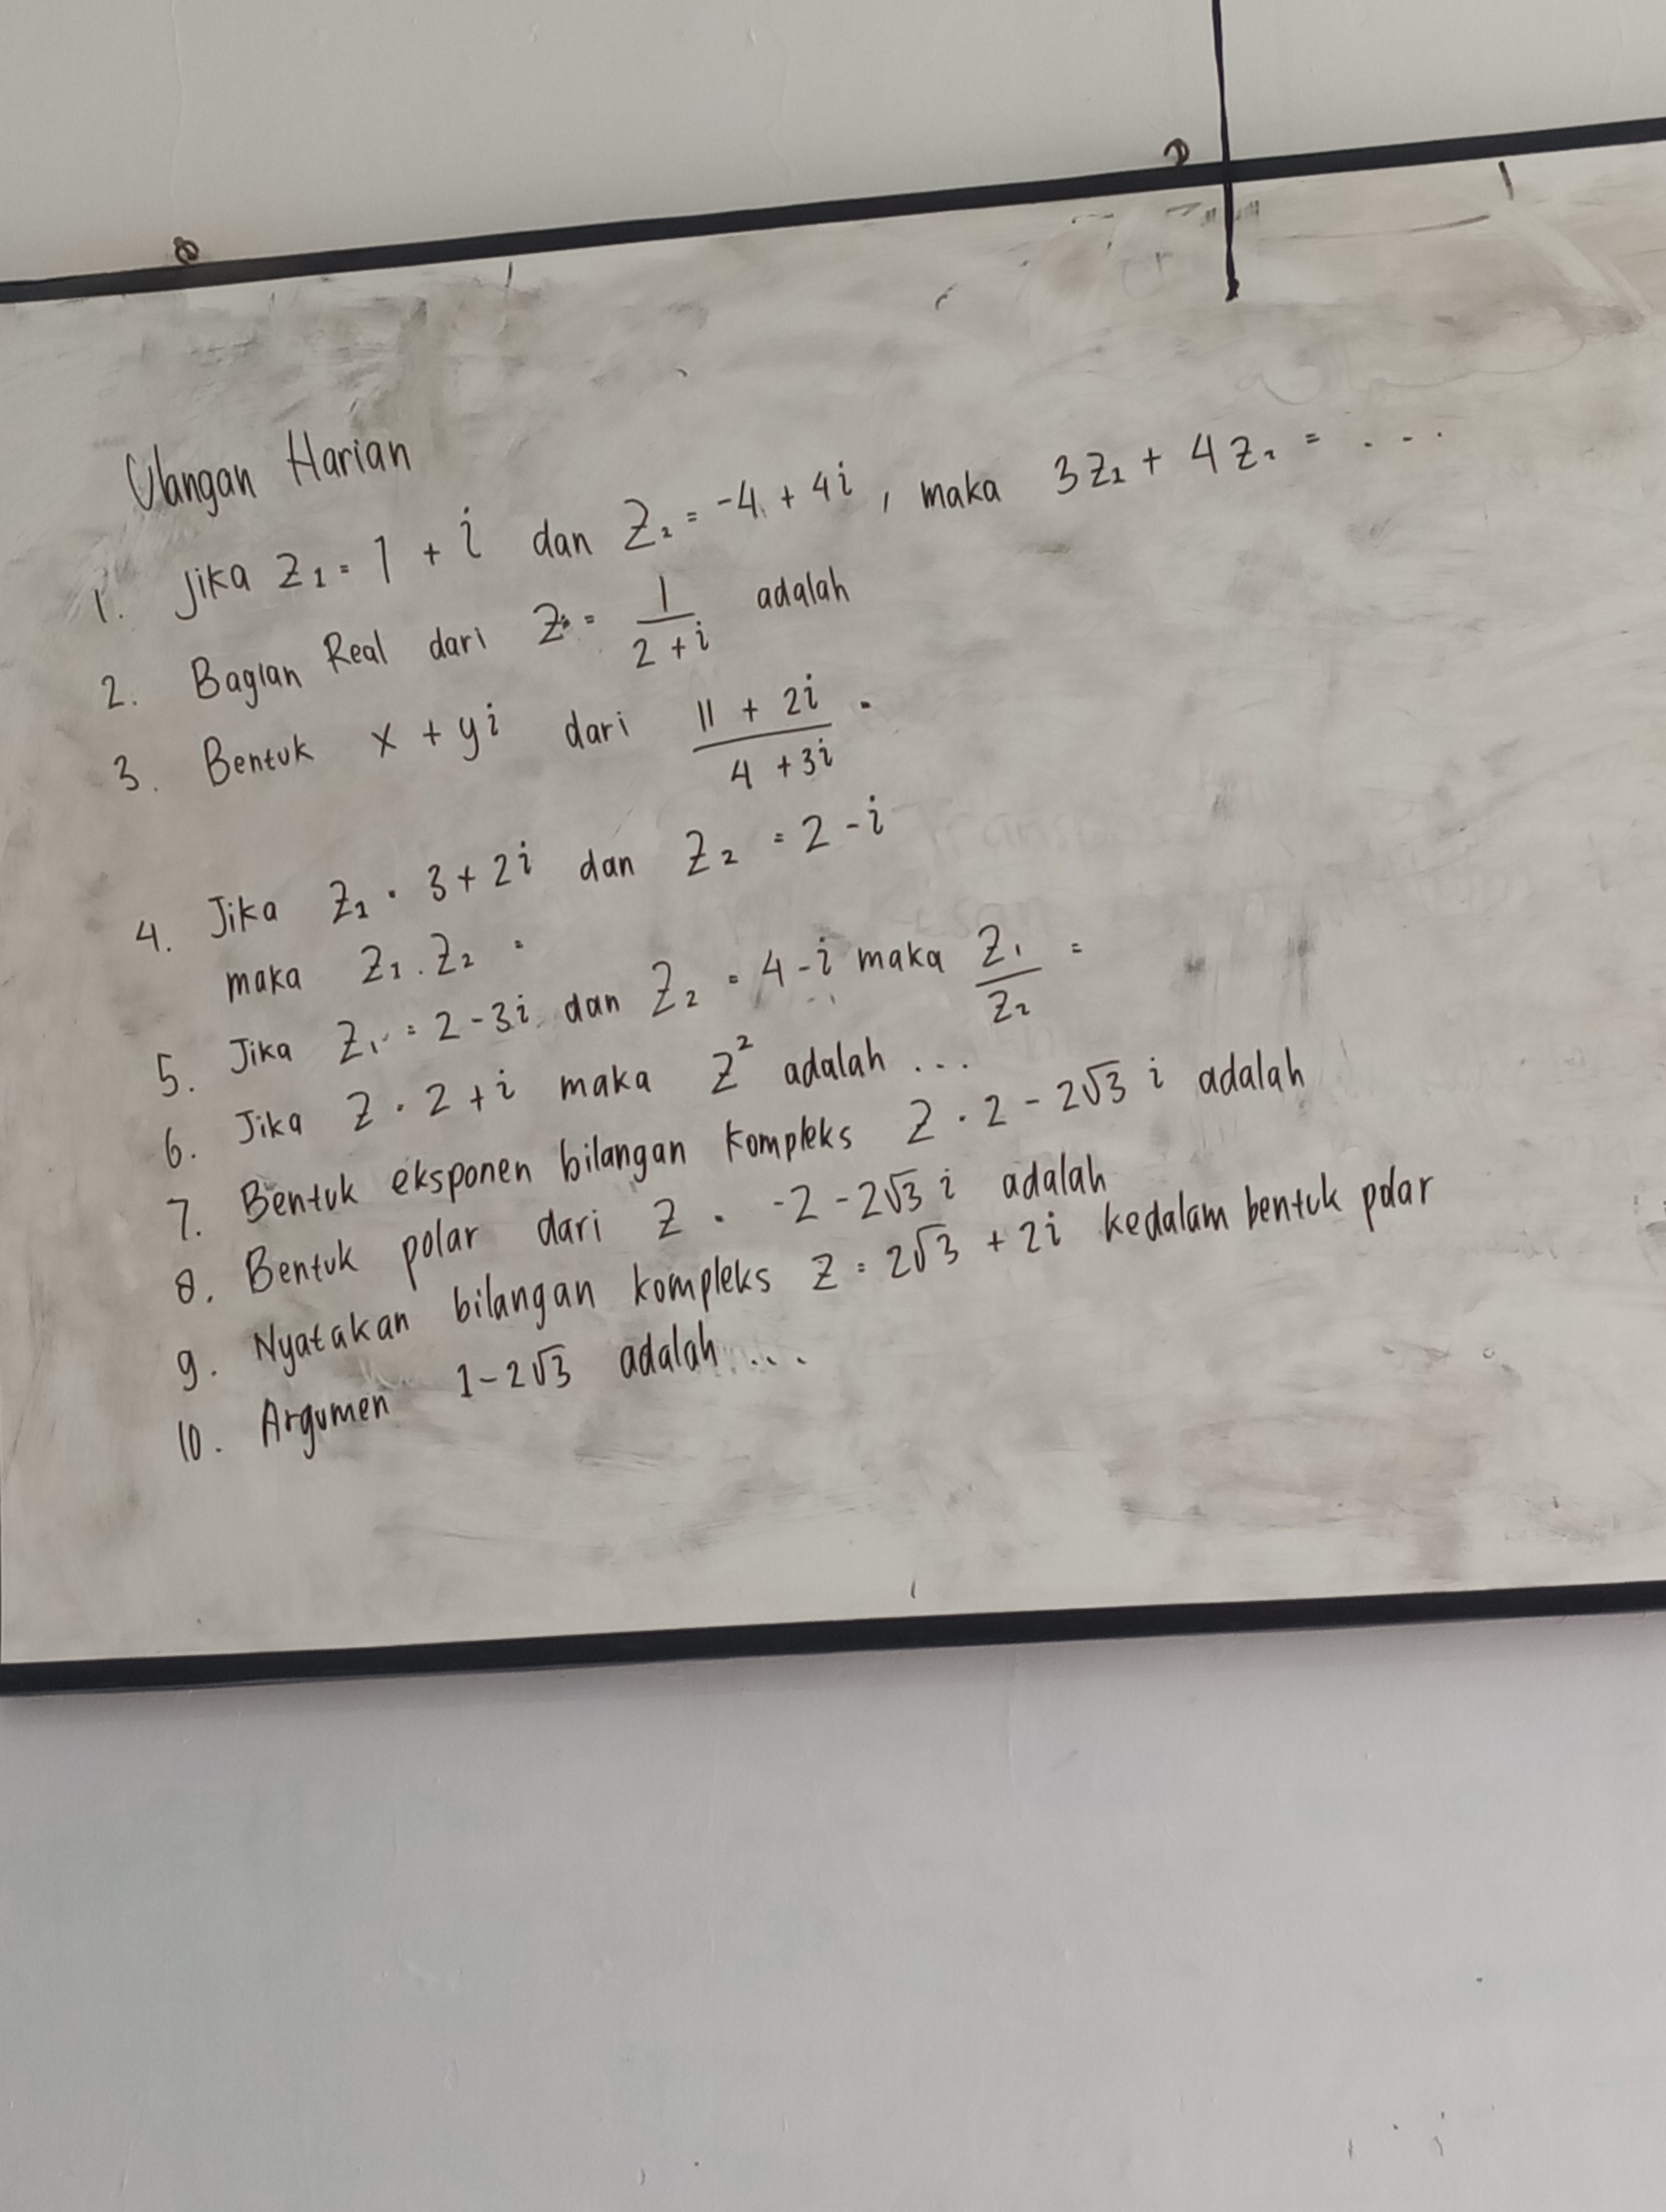 Ulangan Harian
1. Jika Z₁ = 1 + i dan Z₂ = -4 + 4i, maka 3Z₁ + 4Z₂ = ....
2. Bagian Real dari Z = 1/(2 + i) adalah
3. Bentuk x + yi dari (11 + 2i)/(4 + 3i) =
4. Jika Z₁ = 3 + 2i dan Z₂ = 2 - i
maka Z₁ . Z₂ =
5. Jika Z₁ = 2 - 3i dan Z₂ = 4 - i maka Z₁/Z₂ =
6. Jika Z = 2 + i maka Z² adalah ...
7. Bentuk eksponen bilangan kompleks Z = 2 - 2√3 i adalah
8. Bentuk polar dari Z = -2 - 2√3 i adalah
9. Nyatakan bilangan kompleks Z = 2√3 + 2i kedalam bentuk polar
10. Argumen 1 - 2√3 adalah ...